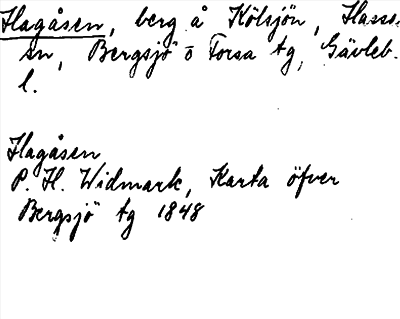 Hagåsen, berg å Kölsjön, Hasse-
sn, Bergsjö o Forsa tg, Gävleb.
l.
Hagåsen
P. H. Widmark, Karta öfver
Bergsjö tg 1848